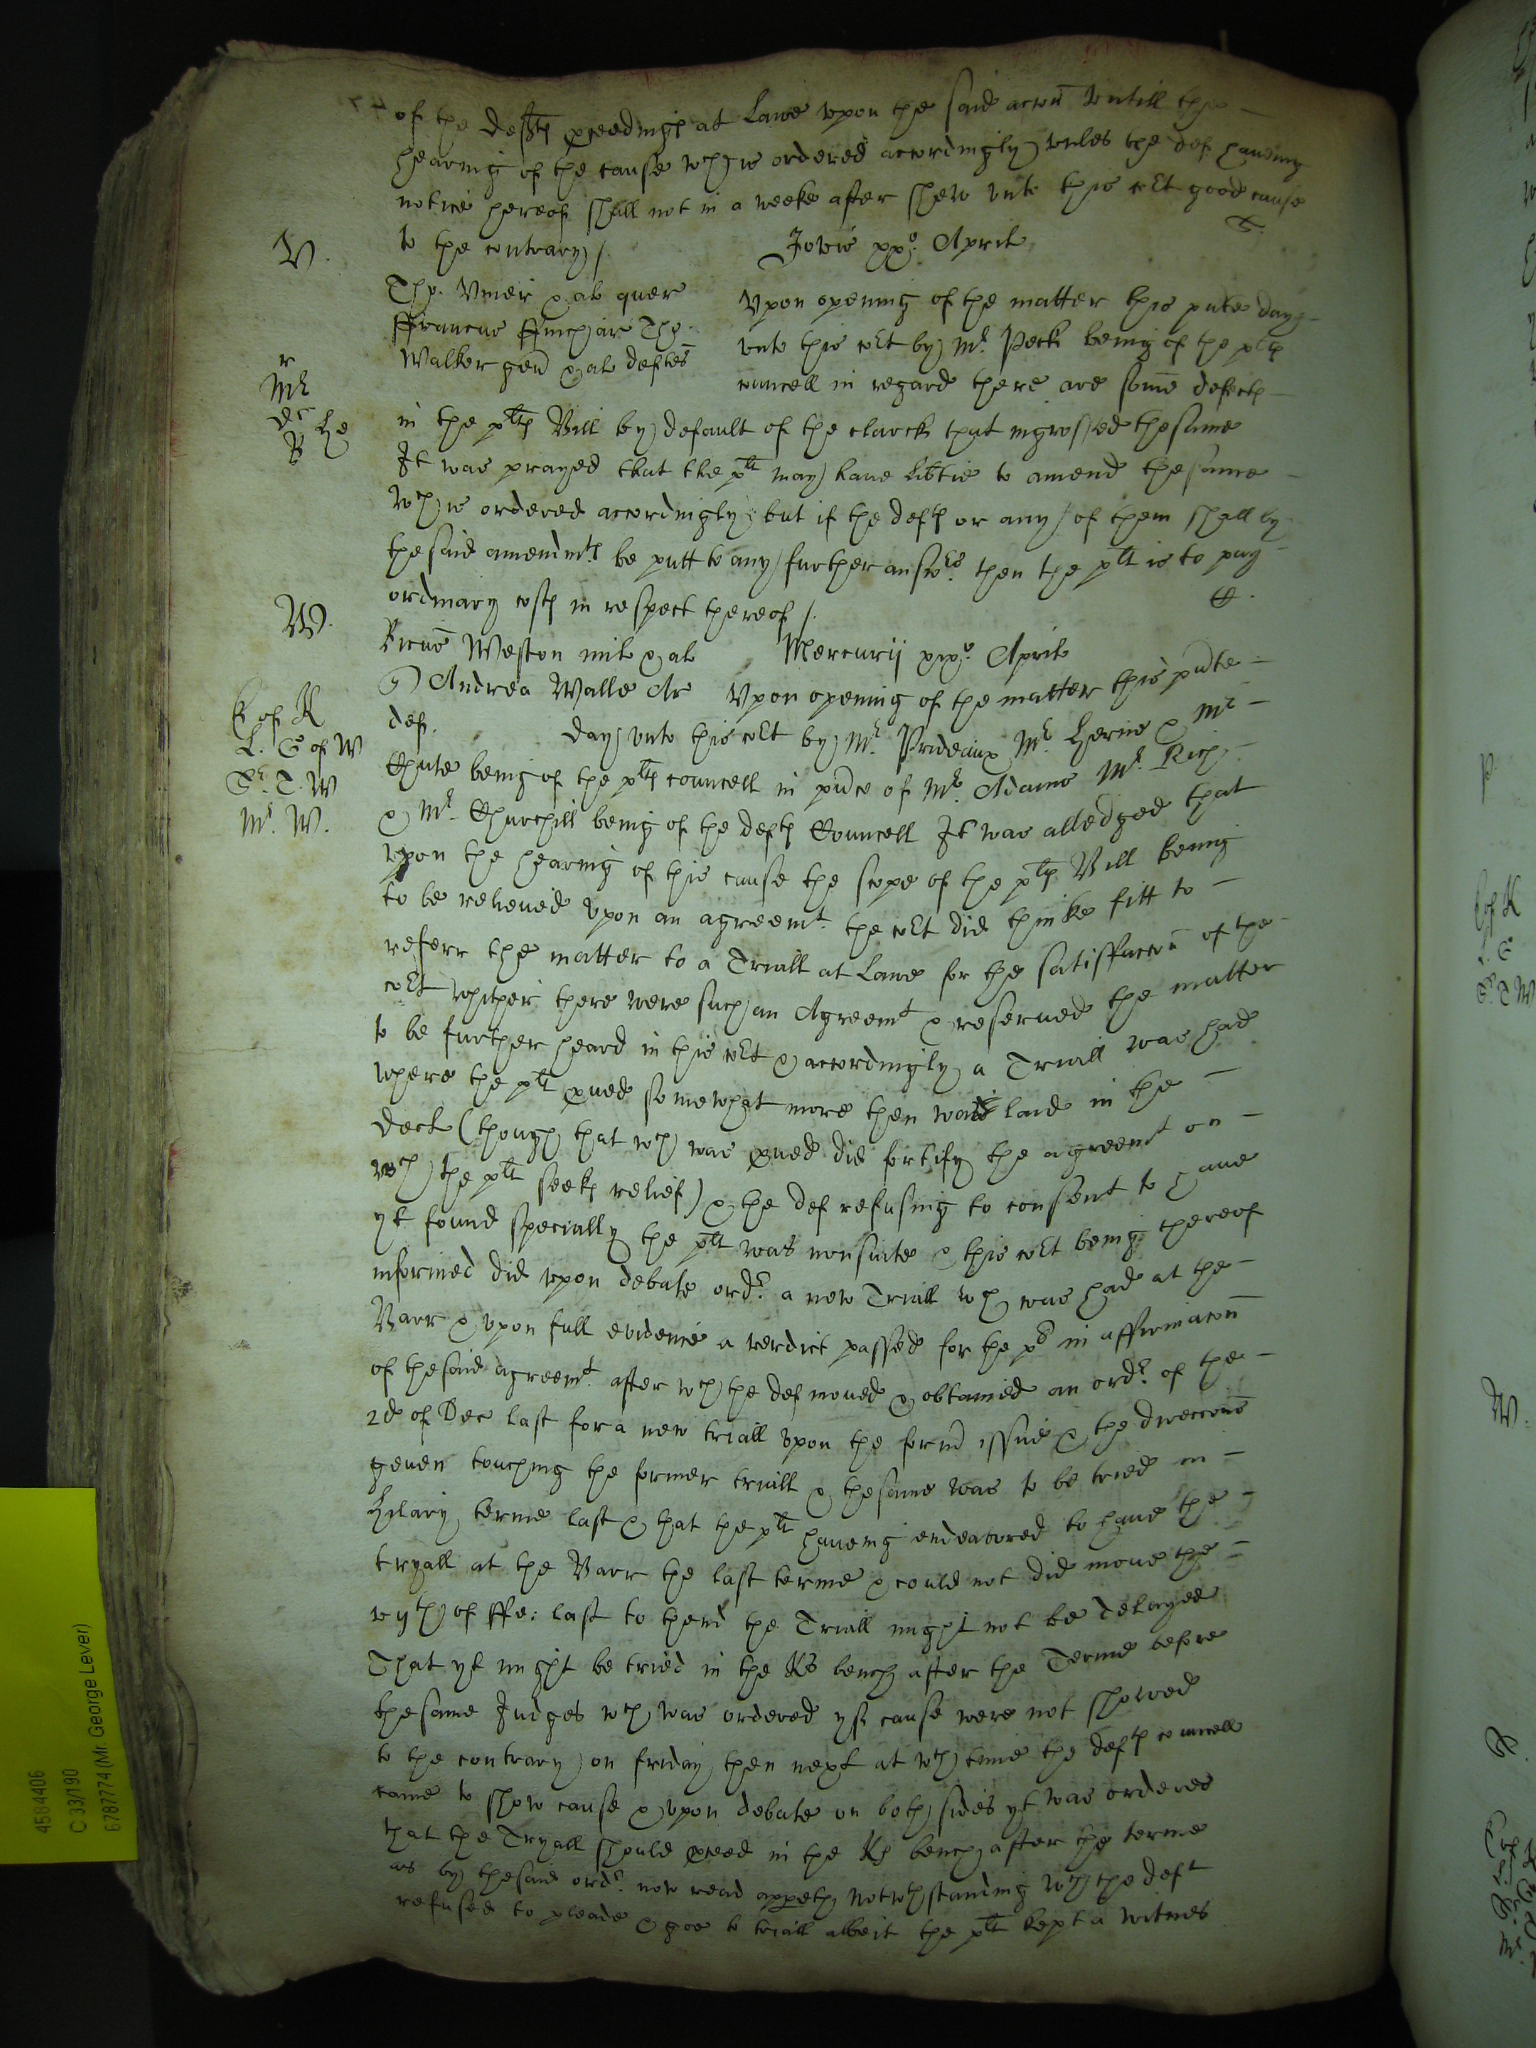 of the defts pceedings at Lawe vpon the said accon vntill the
hearing of the cause wch is ordered accordingly vnles the def. haueing
notice hereof shall not in a weeke after shew vnto this cort good cause
to the contrary /
Jovis xxo. Aprilis
V.
Tho. Vmer & al quer
ffrancus ffinch ar Tho.
Walker gen & al deftes
Vpon opening of the matter this pnte day
vnto this cort by Mr. Peck being of the plts
councell in regard there are some defects
in the plts Bill by default of the clarck that ingrossed thesame
It was prayed that the plt may haue libtie to amend thesame
wch is ordered accordingly but if the defts or any of them shall by
thesaid amendmts be putt to any further answere then the plt is to pay
ordinary costs in respect thereof /.
W.
Ricus Weston mil & al
Mercurij xixo. Aprilis
Andrea Walle Ar
def.
Vpon opening of the matter this pnte
day vnto this cort by Mr. Prideaux Mr. Herne & Mr
E of K
L. S of W
Sr. T. W
Mr. W.
Chute being of the plts councell in pnce of Mr. Adams Mr. Rich
& Mr. Churchill being of the defts Councell It was alledged that
vpon the hearing of this cause the scope of the plts Bill being
to be relieued vpon an agreemt. the cort did thinke fitt to
referr the matter to a Triall at Lawe for the satisffaccon of the
cort whither there were such an Agreemt & reserued the matter
to be further heard in this cort & accordingly a Triall was had
where the plt pued somewhat more then was laid in the
Decl (though that wch was pued did fortify the agreemt on
wch the plt seeks relief) & the def refusing to consent to haue
yt found specially the plt was nonsuite & this cort being thereof
informed did vpon debate ordr. a new Triall wch was had at the
Barr & vpon full evidence a verdict passed for the pl in affirmacon
of thesaid agreemt. after wch the def moued & obtained an ordr. of the
2d of Dec last for a new triall vpon the formr issue & the direccons
geuen touching the former triall & thesame was to be tried in
Hilary terme last & that the plt haueing endeavored to haue the
tryall at the Barr the last terme & could not did moue the
vijth of ffe: last to thend the Triall might not be delayed
That yt might be tried in the Ks bench after the Terme before
thesame Judges wch was ordered yf cause were not shewed
to the contrary on friday then next at wch time the defts councell
came to shew cause & vpon debate on both sides yt was ordered
that the Tryall should pceed in the Ks bench after the terme
as by thesaid ordr. now read appeth Notwthstanding wch the deft
refused to pleade & goe to triall albeit the plt kept a witnes
4584406
C 33/190
6787774 (Mr. George Lever)